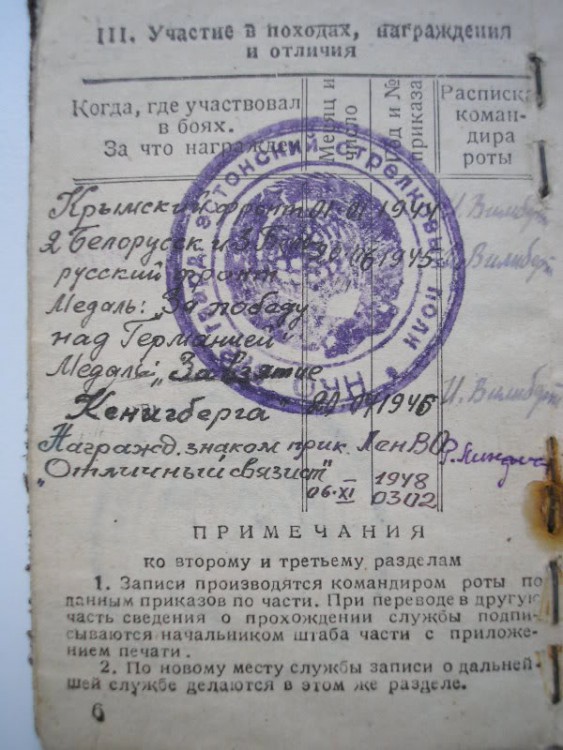 III. Участие в походах, награждения
и отличия
Когда, где участвовал
в боях.
За что награжден
Месяц и
число
Год и №
приказа
Расписка
коман-
дира
роты
Крымский фронт 01 01 1944
2 Белорусск и 3 Бело-
русский фронт 06 1945
Медаль: „За победу
над Германией"
Медаль „За взятие
Кенигберга" 04 1946
Награжд. знаком прик. ЛенВО
„Отличный связист"
06.XI 1948
0302
Стрелковый полк
НКО
ПРИМЕЧАНИЯ
ко второму и третьему разделам
1. Записи производятся командиром роты по
данным приказов по части. При переводе в другую
часть сведения о прохождении службы подпи-
сываются начальником штаба части с приложе-
нием печати.
2. По новому месту службы записи о дальней-
шей службе делаются в этом же разделе.
6